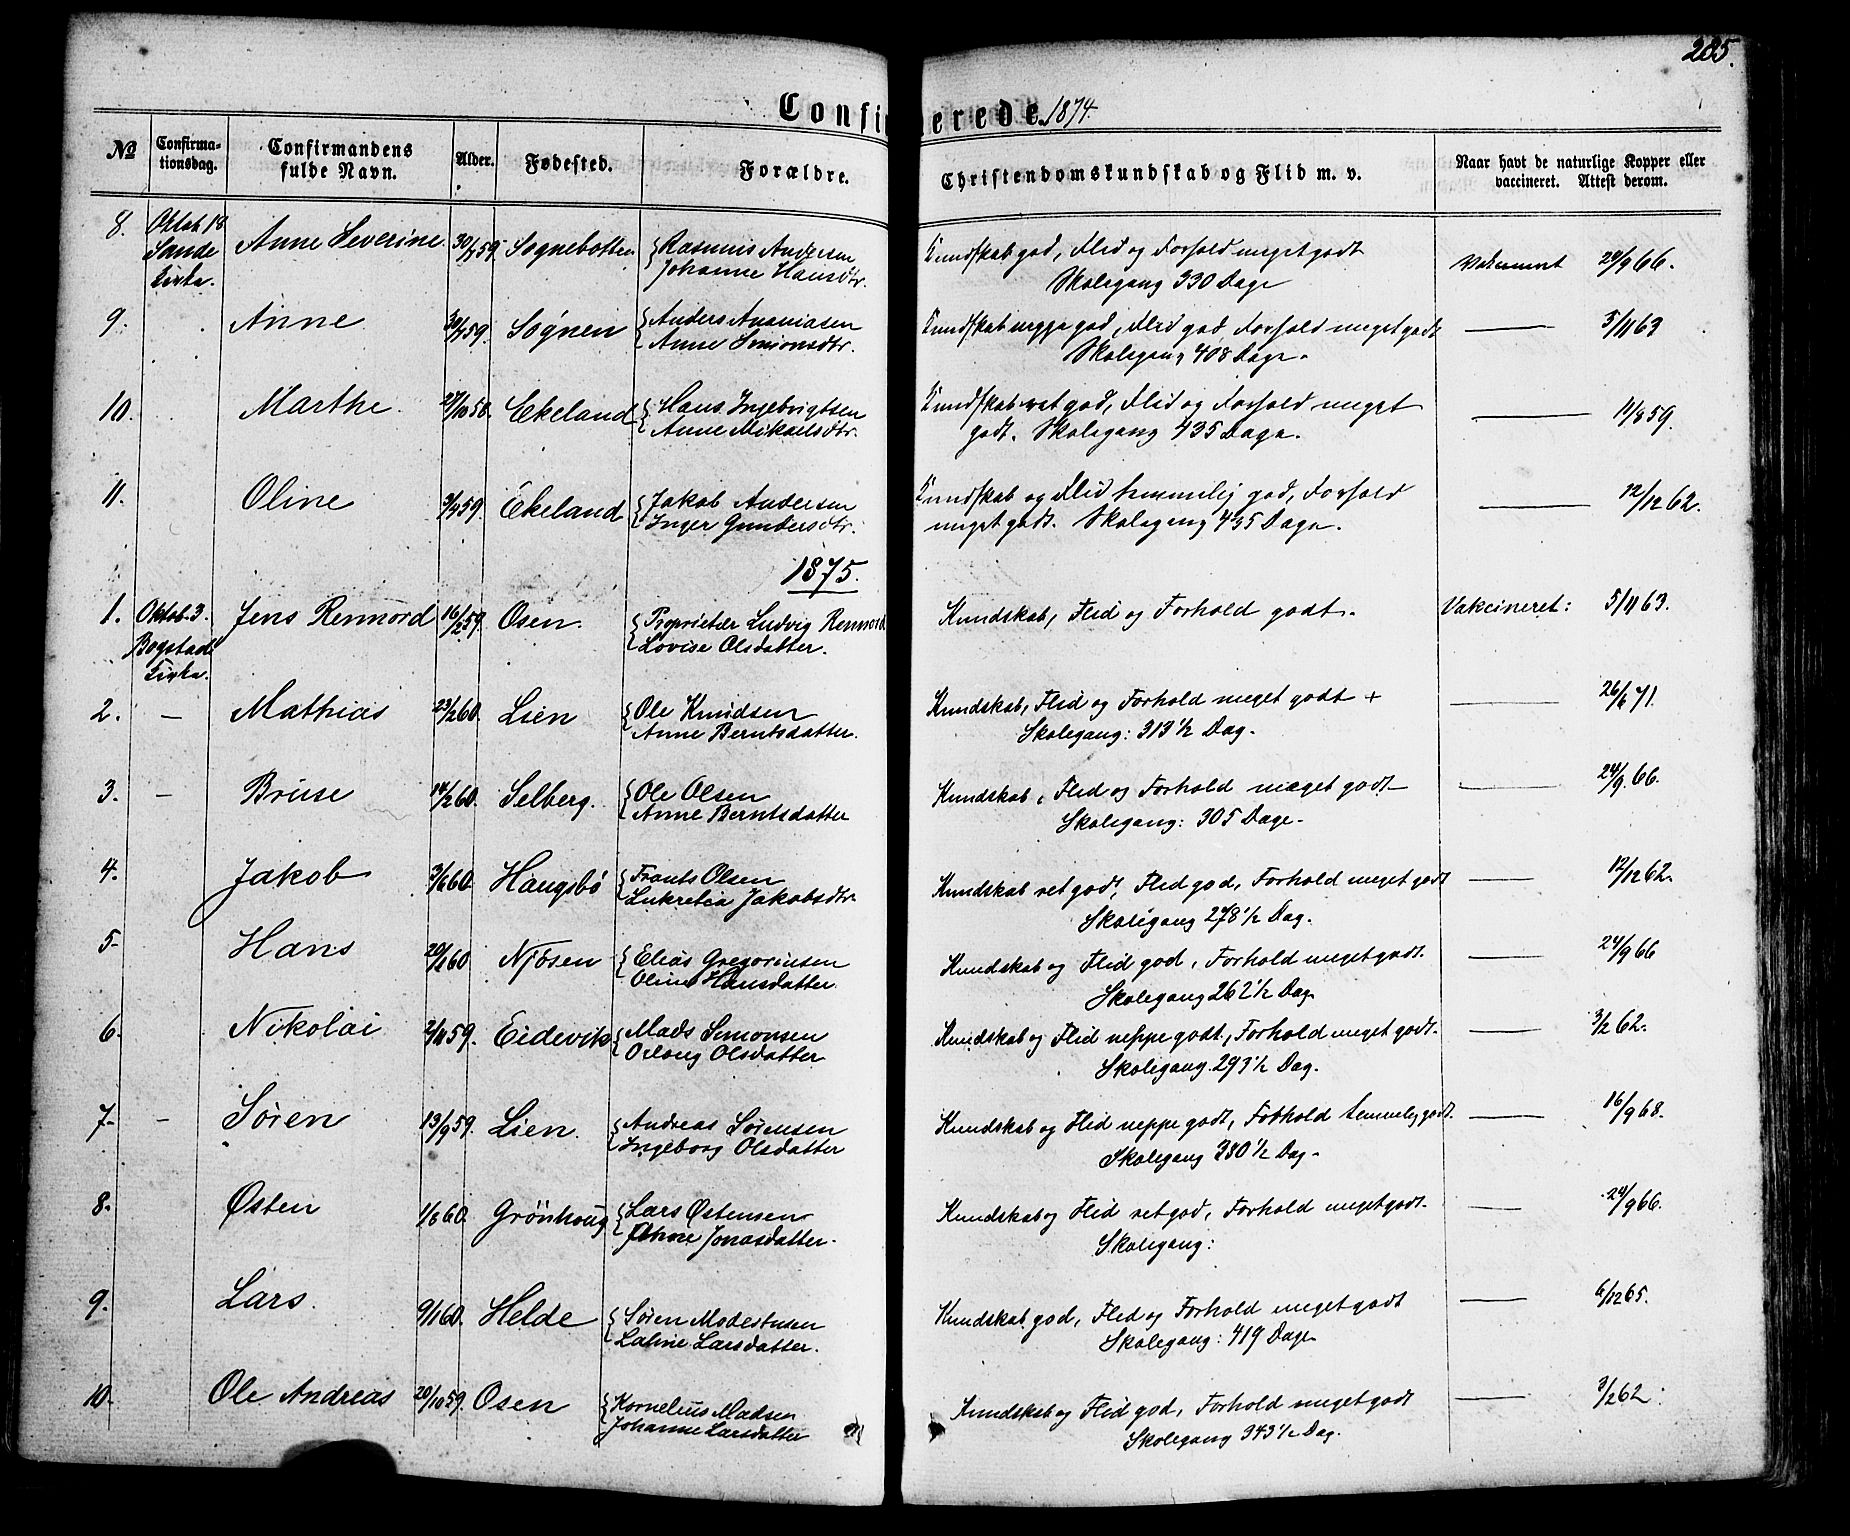 285.
Confirmerede 1874.
№ Confirma-tionsdag. Confirmandens fulde Navn. Alder. Fødested. Forældre. Christendomskundskab og Flid m. v. Naar havt de naturlige Kopper eller vaccineret. Attest derom.
8. Oktob 18 Anne Severine 59 Sognebotten { Rasmus Andersen Kundskab god, Flid og Forhold meget godt 24/9 66.
Sande Kirke. Johanne Hansdtr. Skolegang 330 Dage
9. Anne 59. Sögnen { Anders Ananiasen Kundskab neppe god, Flid god, Forhold meget godt — 5/11 63
Anne Simonsdtr. Skolegang 408 Dage.
10. Marthe. 27/10 58. Ekeland { Hans Ingebrigtsen Kundskab ret god, Flid og Forhold meget — 11/8 59.
Anne Mikaelsdtr. godt. Skolegang 435 Dage.
11. Oline 3/4 59. Ekeland { Jakob Andersen Kundskab og Flid temmelig god, Forhold — 12/12 62.
Inger Gundersdtr. meget godt. Skolegang 435 Dage.
1875.
1. Oktob. 3. Jens Rennord 16/2 59. Osen. { Proprietær Ludvig Rennord Kundskab, Flid og Forhold godt. Vakcineret: 5/11 63.
Bogstad Kirke. Lovise Olsdatter.
2. — Mathias 23/2 60. Lien { Ole Knudsen Kundskab, Flid og Forhold meget godt + — 26/6 71.
Anne Berntsdatter. Skolegang: 313 1/2 Dag.
3. — Bruse 14/2 60. Selberg. { Ole Olsen Kundskab, Flid og Forhold meget godt — 24/9. 66.
Anne Berntsdatter Skolegang: 305 Dage.
4. Jakob 3/6 60. Haugsbö { Frants Olsen Kundskab ret godt, Flid god, Forhold meget godt — 12/12 62.
Lukretia Jakobsdtr. Skolegang 278 1/2 Dag.
5. Hans 60 Njösen { Elias Gregoriusen Kundskab og Flid god, Forhold meget godt. — 24/9 66
Oline Hansdatter. Skolegang 262 1/2 Dag.
6. Nikolai 2/11 59. Eidevik { Mads Simonsen Kundskab og Flid neppe godt, Forhold meget godt. — 3/2 62.
Oslaug Olsdatter Skolegang. 293 1/2 Dag.
7. — Sören 13/9 59. Lien. { Andreas Sörensen Kundskab og Flid neppe godt, Forhold temmelig godt. — 16/9 68.
Ingeborg Olsdatter Skolegang 330 1/2 Dag.
8. Østen 1/8 60. Grönhoug { Lars Østensen Kundskab og Flid ret god, Forhold meget godt. — 24/9 66.
Jonasdatter. Skolegang:
9. Lars. 9/1 60. Helde { Sören Modestusen Kundskab god, Flid og Forhold meget godt — 6/12 65.
Larsdatter. Skolegang: 419 Dage
10. Ole Andreas 20/10 59. Osen { Kornelius Madsen Kundskab og Flid god, Forhold meget godt — 3/2 62.
Johanne Larsdatter Skolegang 343 1/2 Dag.